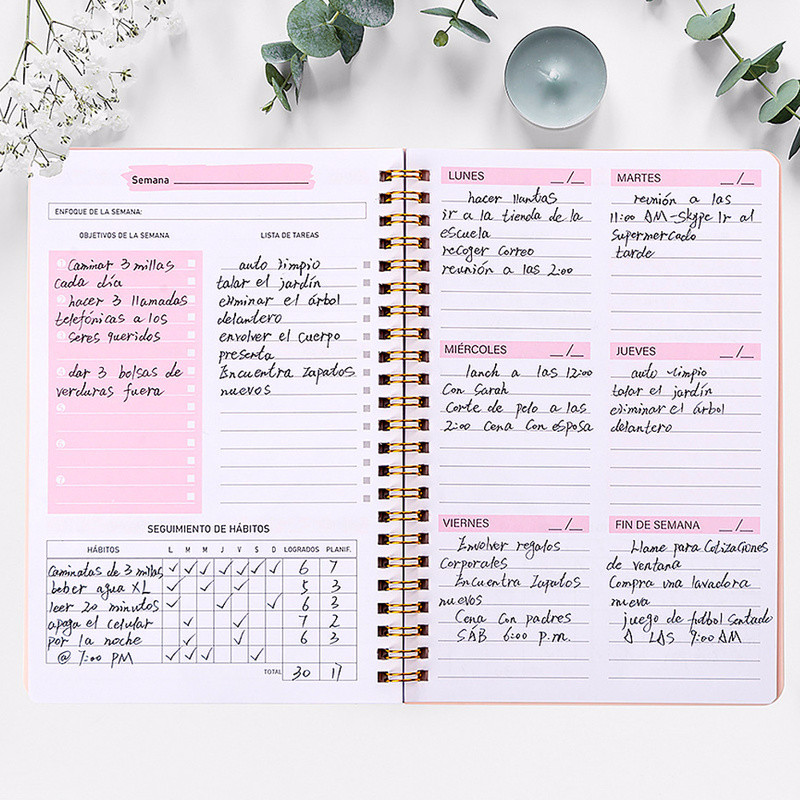 Semana
ENFOQUE DE LA SEMANA:
OBJETIVOS DE LA SEMANA
1 Caminar 3 millas
cada día
2 hacer 3 llamadas
telefónicas a los
3 seres queridos
4 dar 3 bolsas de
verduras fuera
5
6
7
LISTA DE TAREAS
auto limpio
talar el jardín
eliminar el árbol
delantero
envolver el cuerpo
presenta
Encuentra zapatos
nuevos
SEGUIMIENTO DE HÁBITOS
HÁBITOS L M M J V S D LOGRADOS PLANIF.
Caminatas de 3 millas ✓ ✓ ✓ ✓ ✓ ✓ ✓ 6 7
beber agua XL ✓ ✓ ✓ 5 3
leer 20 minutos ✓ ✓ ✓ 6 3
apaga el celular ✓ ✓ 7 2
por la noche ✓ ✓ 6 3
@ 7:00 PM ✓ ✓ ✓ ✓
TOTAL 30 17
LUNES __/__
hacer llantas
ir a la tienda de la
escuela
recoger correo
reunión a las 2:00
MARTES __/__
reunión a las
11:00 AM-Skype Ir al
supermercado
tarde
MIÉRCOLES __/__
lanch a las 12:00
Con Sarah
Corte de pelo a las
2:00 Cena Con esposa
JUEVES __/__
auto limpio
talar el jardín
eliminar el árbol
delantero
VIERNES __/__
Envolver regalos
Corporales
Encuentra zapatos
nuevos
Cena Con padres
SÁB 6:00 p.m.
FIN DE SEMANA __/__
Llame para Cotizaciones
de ventana
Compra una lavadora
nueva
juego de futbol Sentado
A LAS 9:00 AM